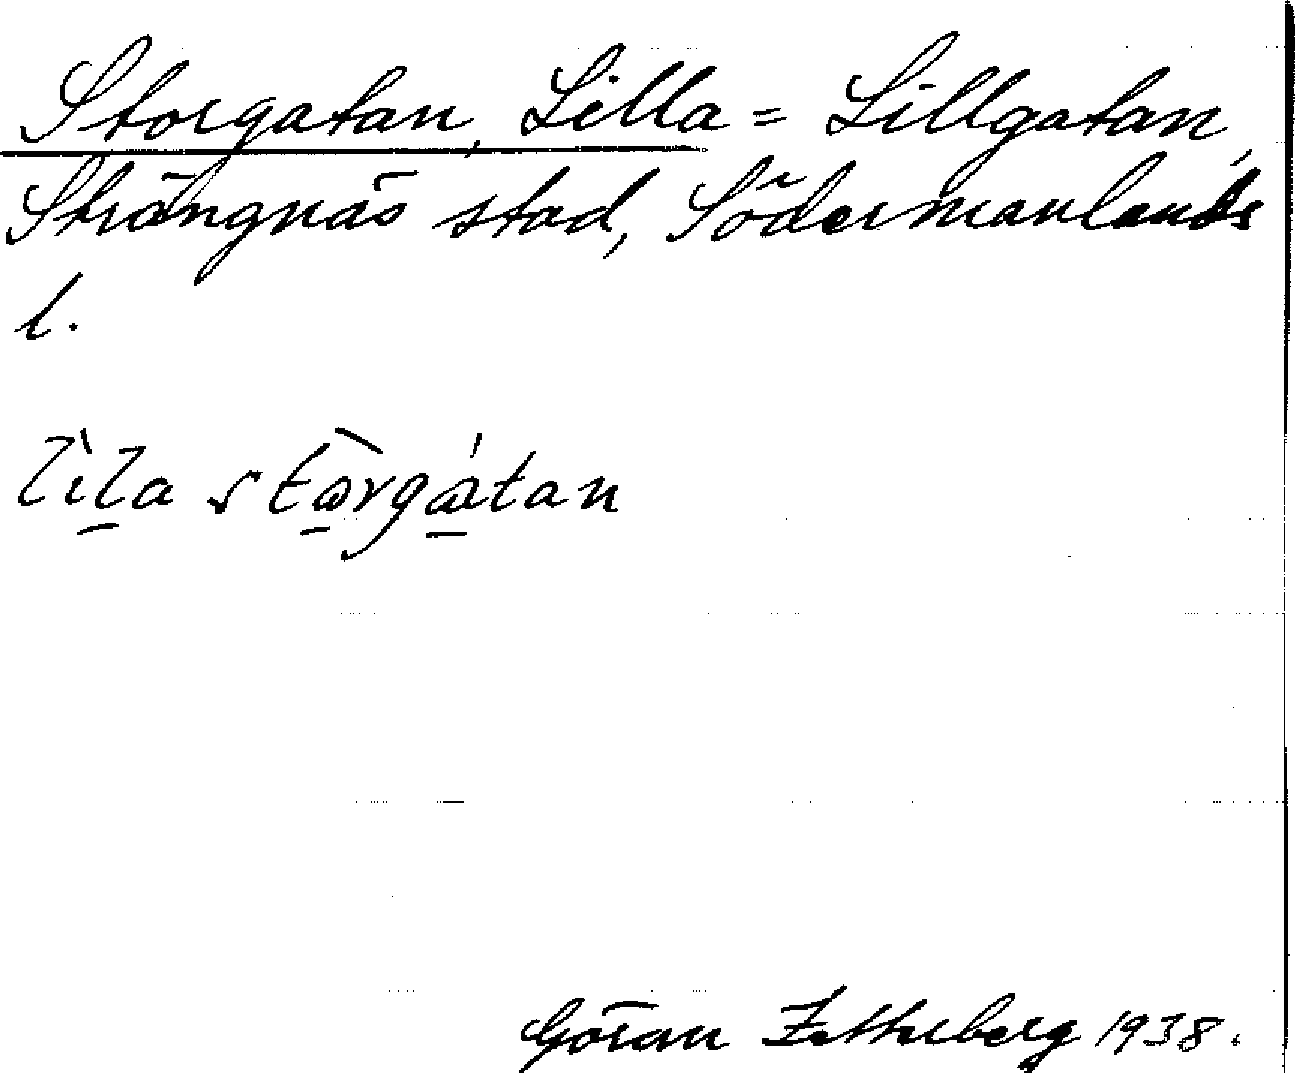 Storgatan, Lilla = Lillgatan,
Strängnäs stad, Södermanlands
l.
lìla stòrgátan
Göran Zetterberg 1938.